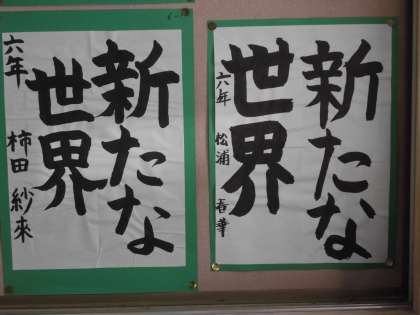 新たな
世界
六年 松浦 春華
新たな
世界
六年 柿田 紗來